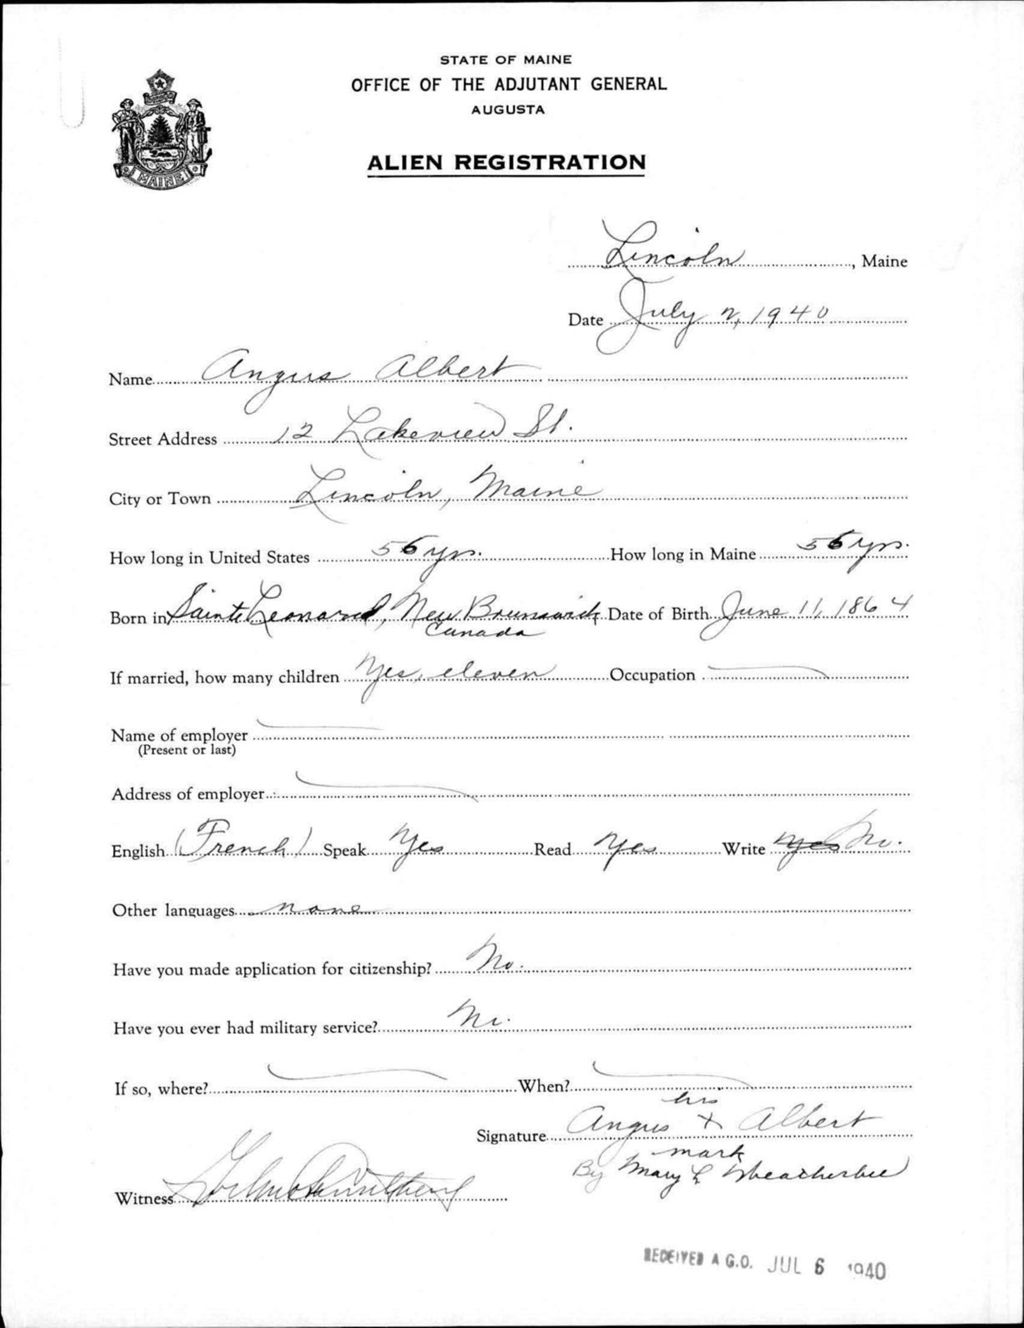 STATE OF MAINE
OFFICE OF THE ADJUTANT GENERAL
AUGUSTA
MAINE
ALIEN REGISTRATION
Lincoln, Maine
Date July 2, 1940
Name Angus Albert
Street Address 12 Lakeview St.
City or Town Lincoln, Maine
How long in United States 56 yrs. How long in Maine 56 yrs.
Born in Sainte Leonard, New Brunswick Date of Birth June 11, 1864
Canada
If married, how many children Yes, eleven Occupation
Name of employer
(Present or last)
Address of employer
English (French) Speak Yes Read Yes Write Yes No.
Other languages none
Have you made application for citizenship? No.
Have you ever had military service? No.
If so, where? When?
his
Signature Angus x Albert
mark
By Mary L Weatherbee
Witness
RECEIVED A.G.O. JUL 6 1940